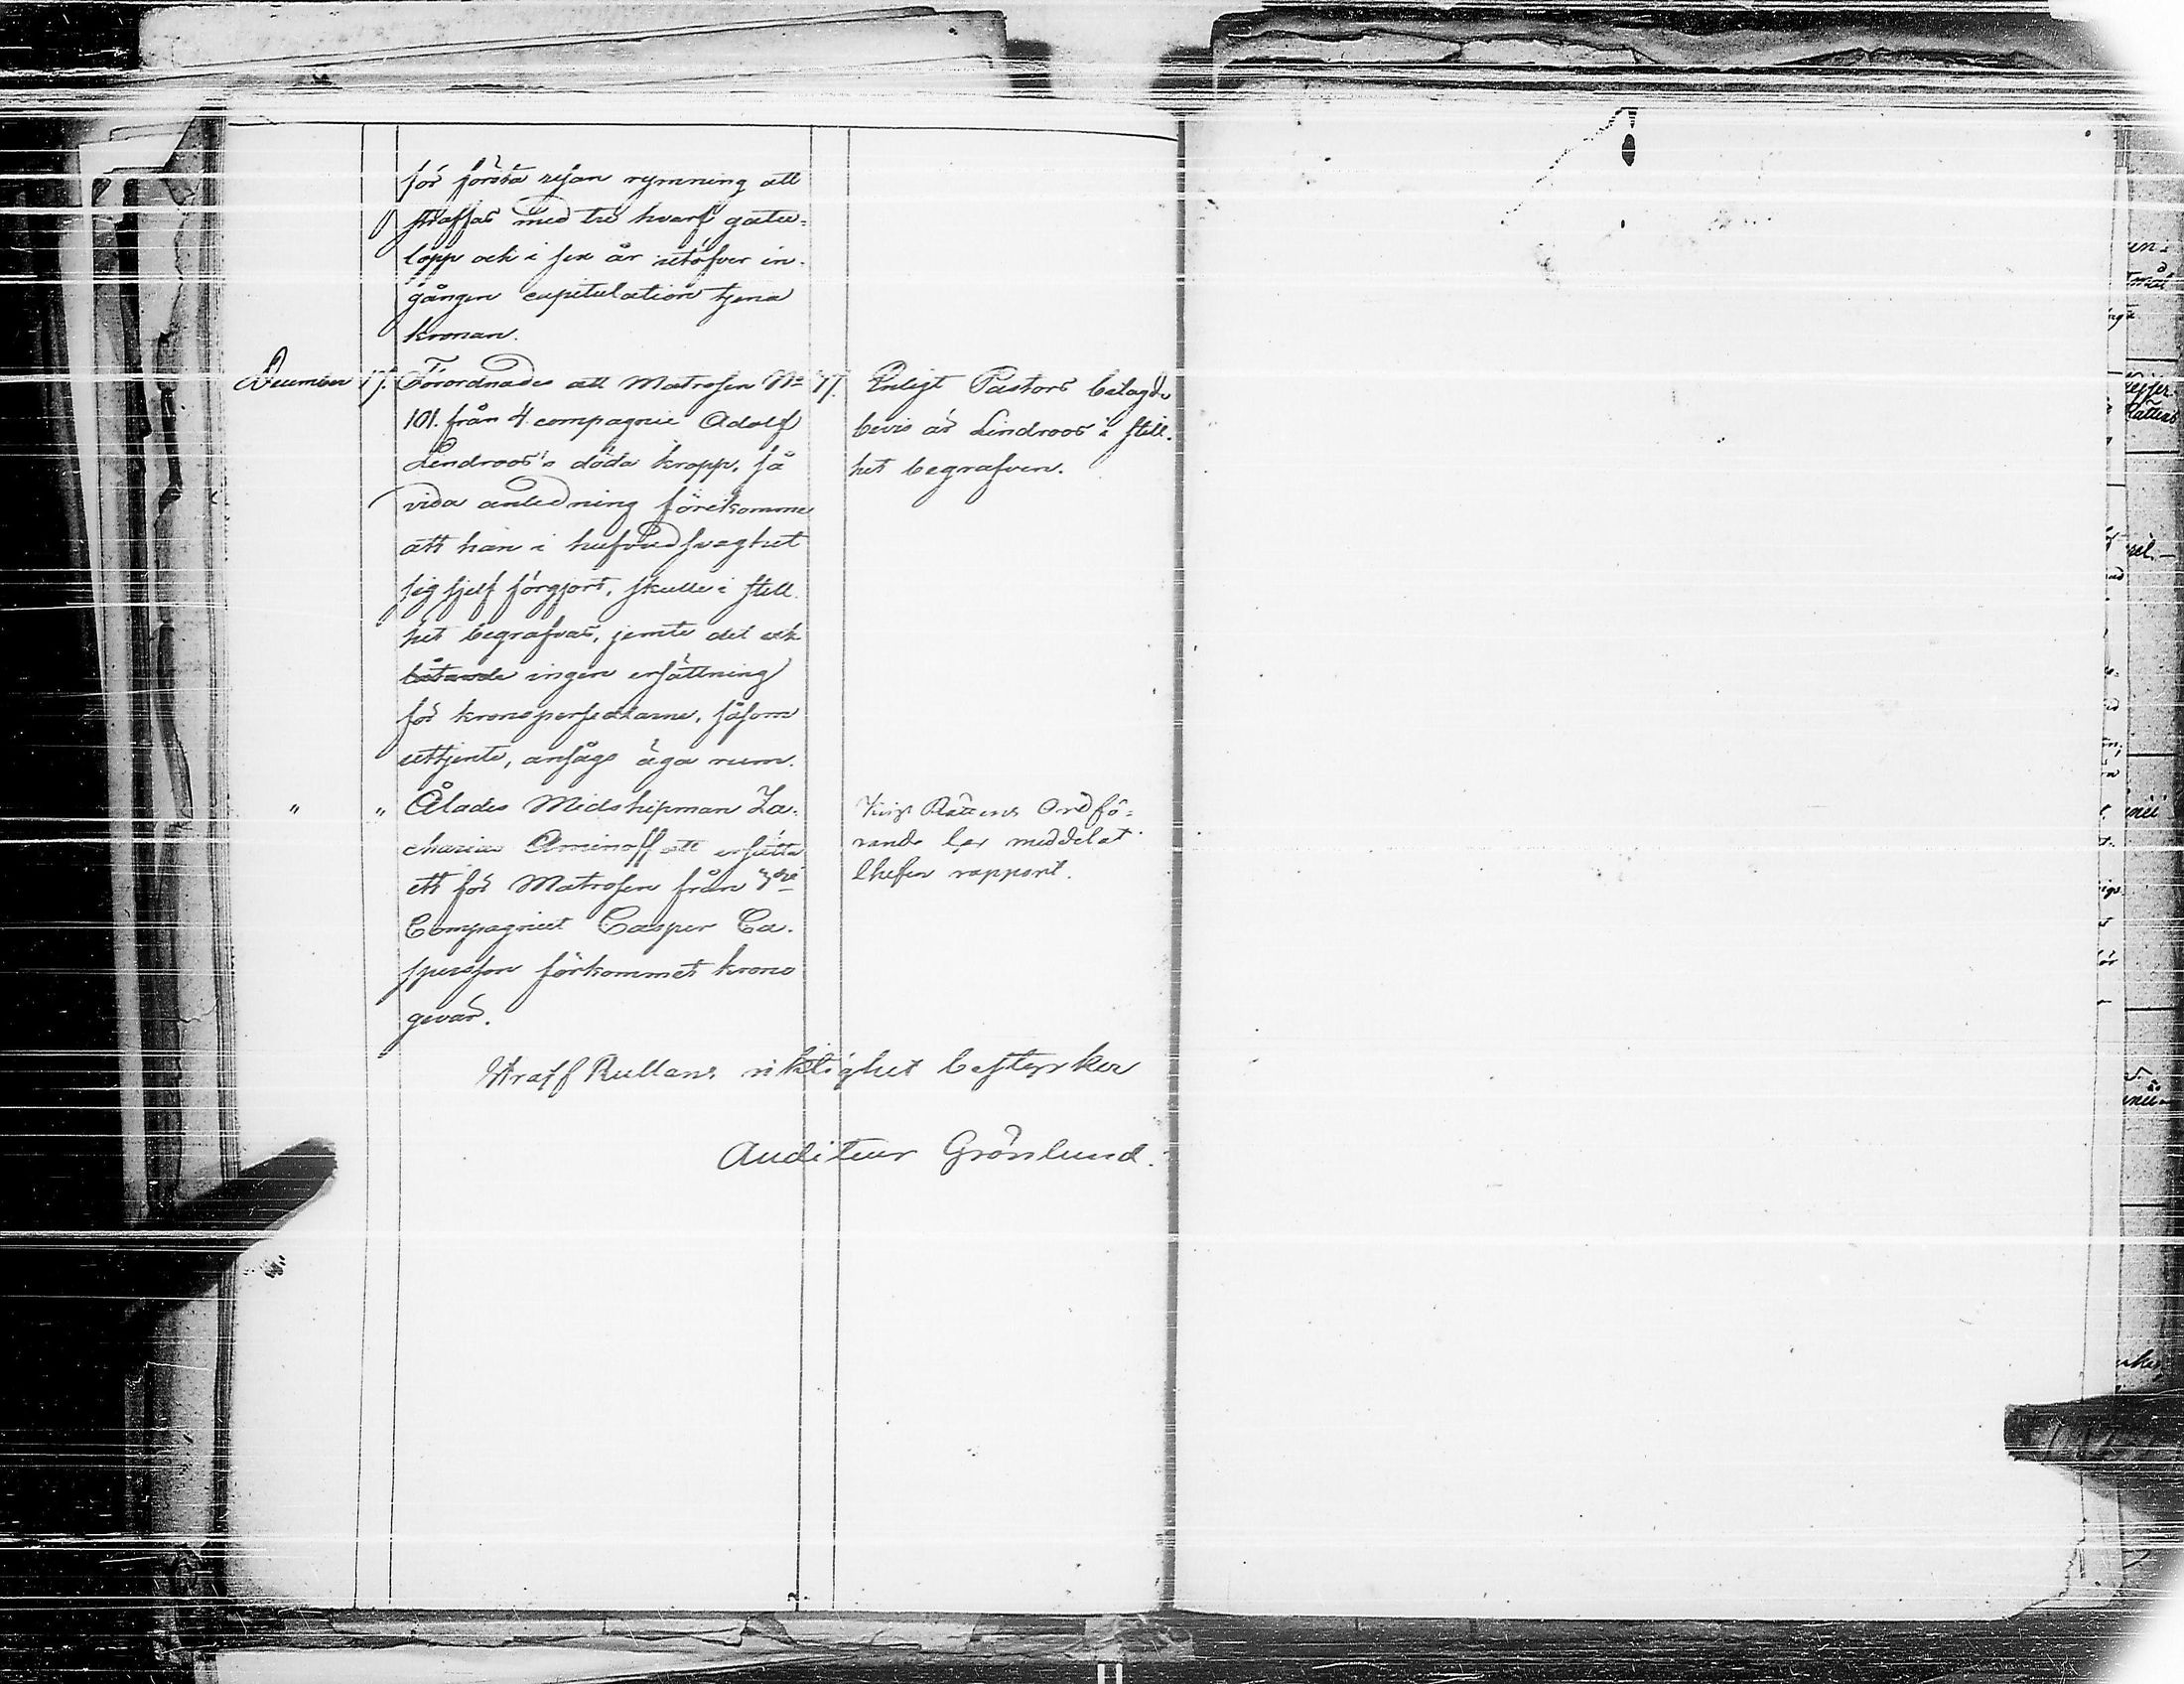 för första resan rymning att
straffas med tre hvarf gatu-
lopp och i sex år utöfver in-
gången capitulation tjena
kronan.
December 17. Förordnades att Matrosen No
101. från 4 compagnie Adolf
Lindroos's döda kropp, så
vida anledning förekomme
att han i hufvudsvaghet
sig sjelf förgjort, skulle i still
het begrafvas, jemte det och
ingen ersättning
för kronopersedlarne, såsom
uttjente, ansågs äga rum.
17. Enligt Pastors bilagde
bevis är Lindroos i still-
het begrafven.
" " Ålades Midshipman Za-
charias Aminoff att ersätta
ett för Matrosen från 3dje
Compagniet Casper Ca-
spersson förkommet krono
gevär.
Krigs Rättens Ordfö-
rande har meddelat
Chefen rapport.
Straff Rullans riktighet bestyrker
Auditeur Grönlund.